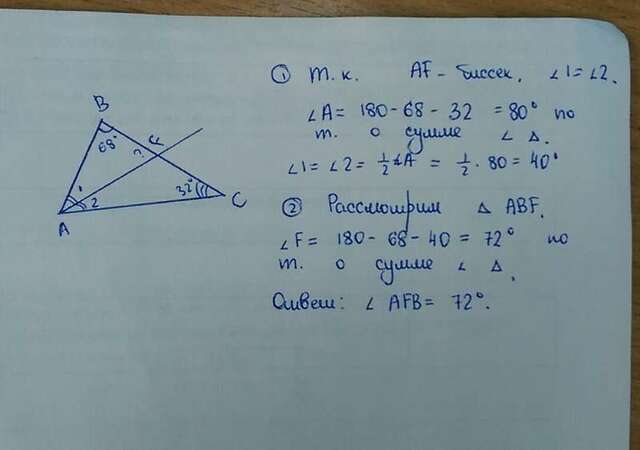 B
68°
?
F
1
2
32°
C
A
① т.к. AF - биссек, ∠1=∠2.
∠A= 180-68-32 =80° по
т. о сумме ∠ Δ.
∠1=∠2= 1/2 ∠A = 1/2 · 80 = 40°
② Рассмотрим Δ ABF.
∠F= 180-68-40 = 72° по
т. о сумме ∠ Δ.
Ответ: ∠ AFB= 72°.